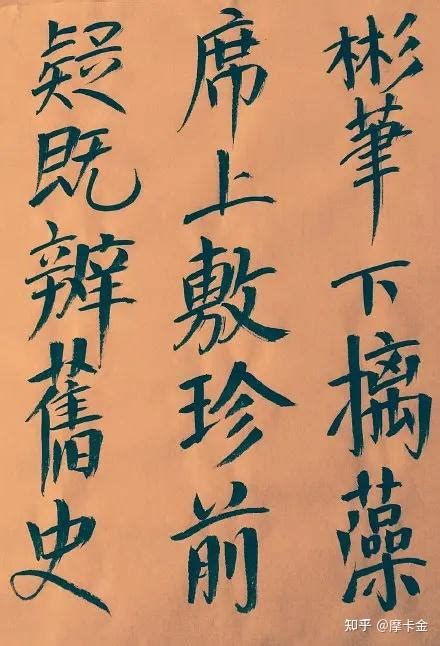 彬筆下摛藻
席上敷珍前
疑既辨舊史
知乎 @摩卡金